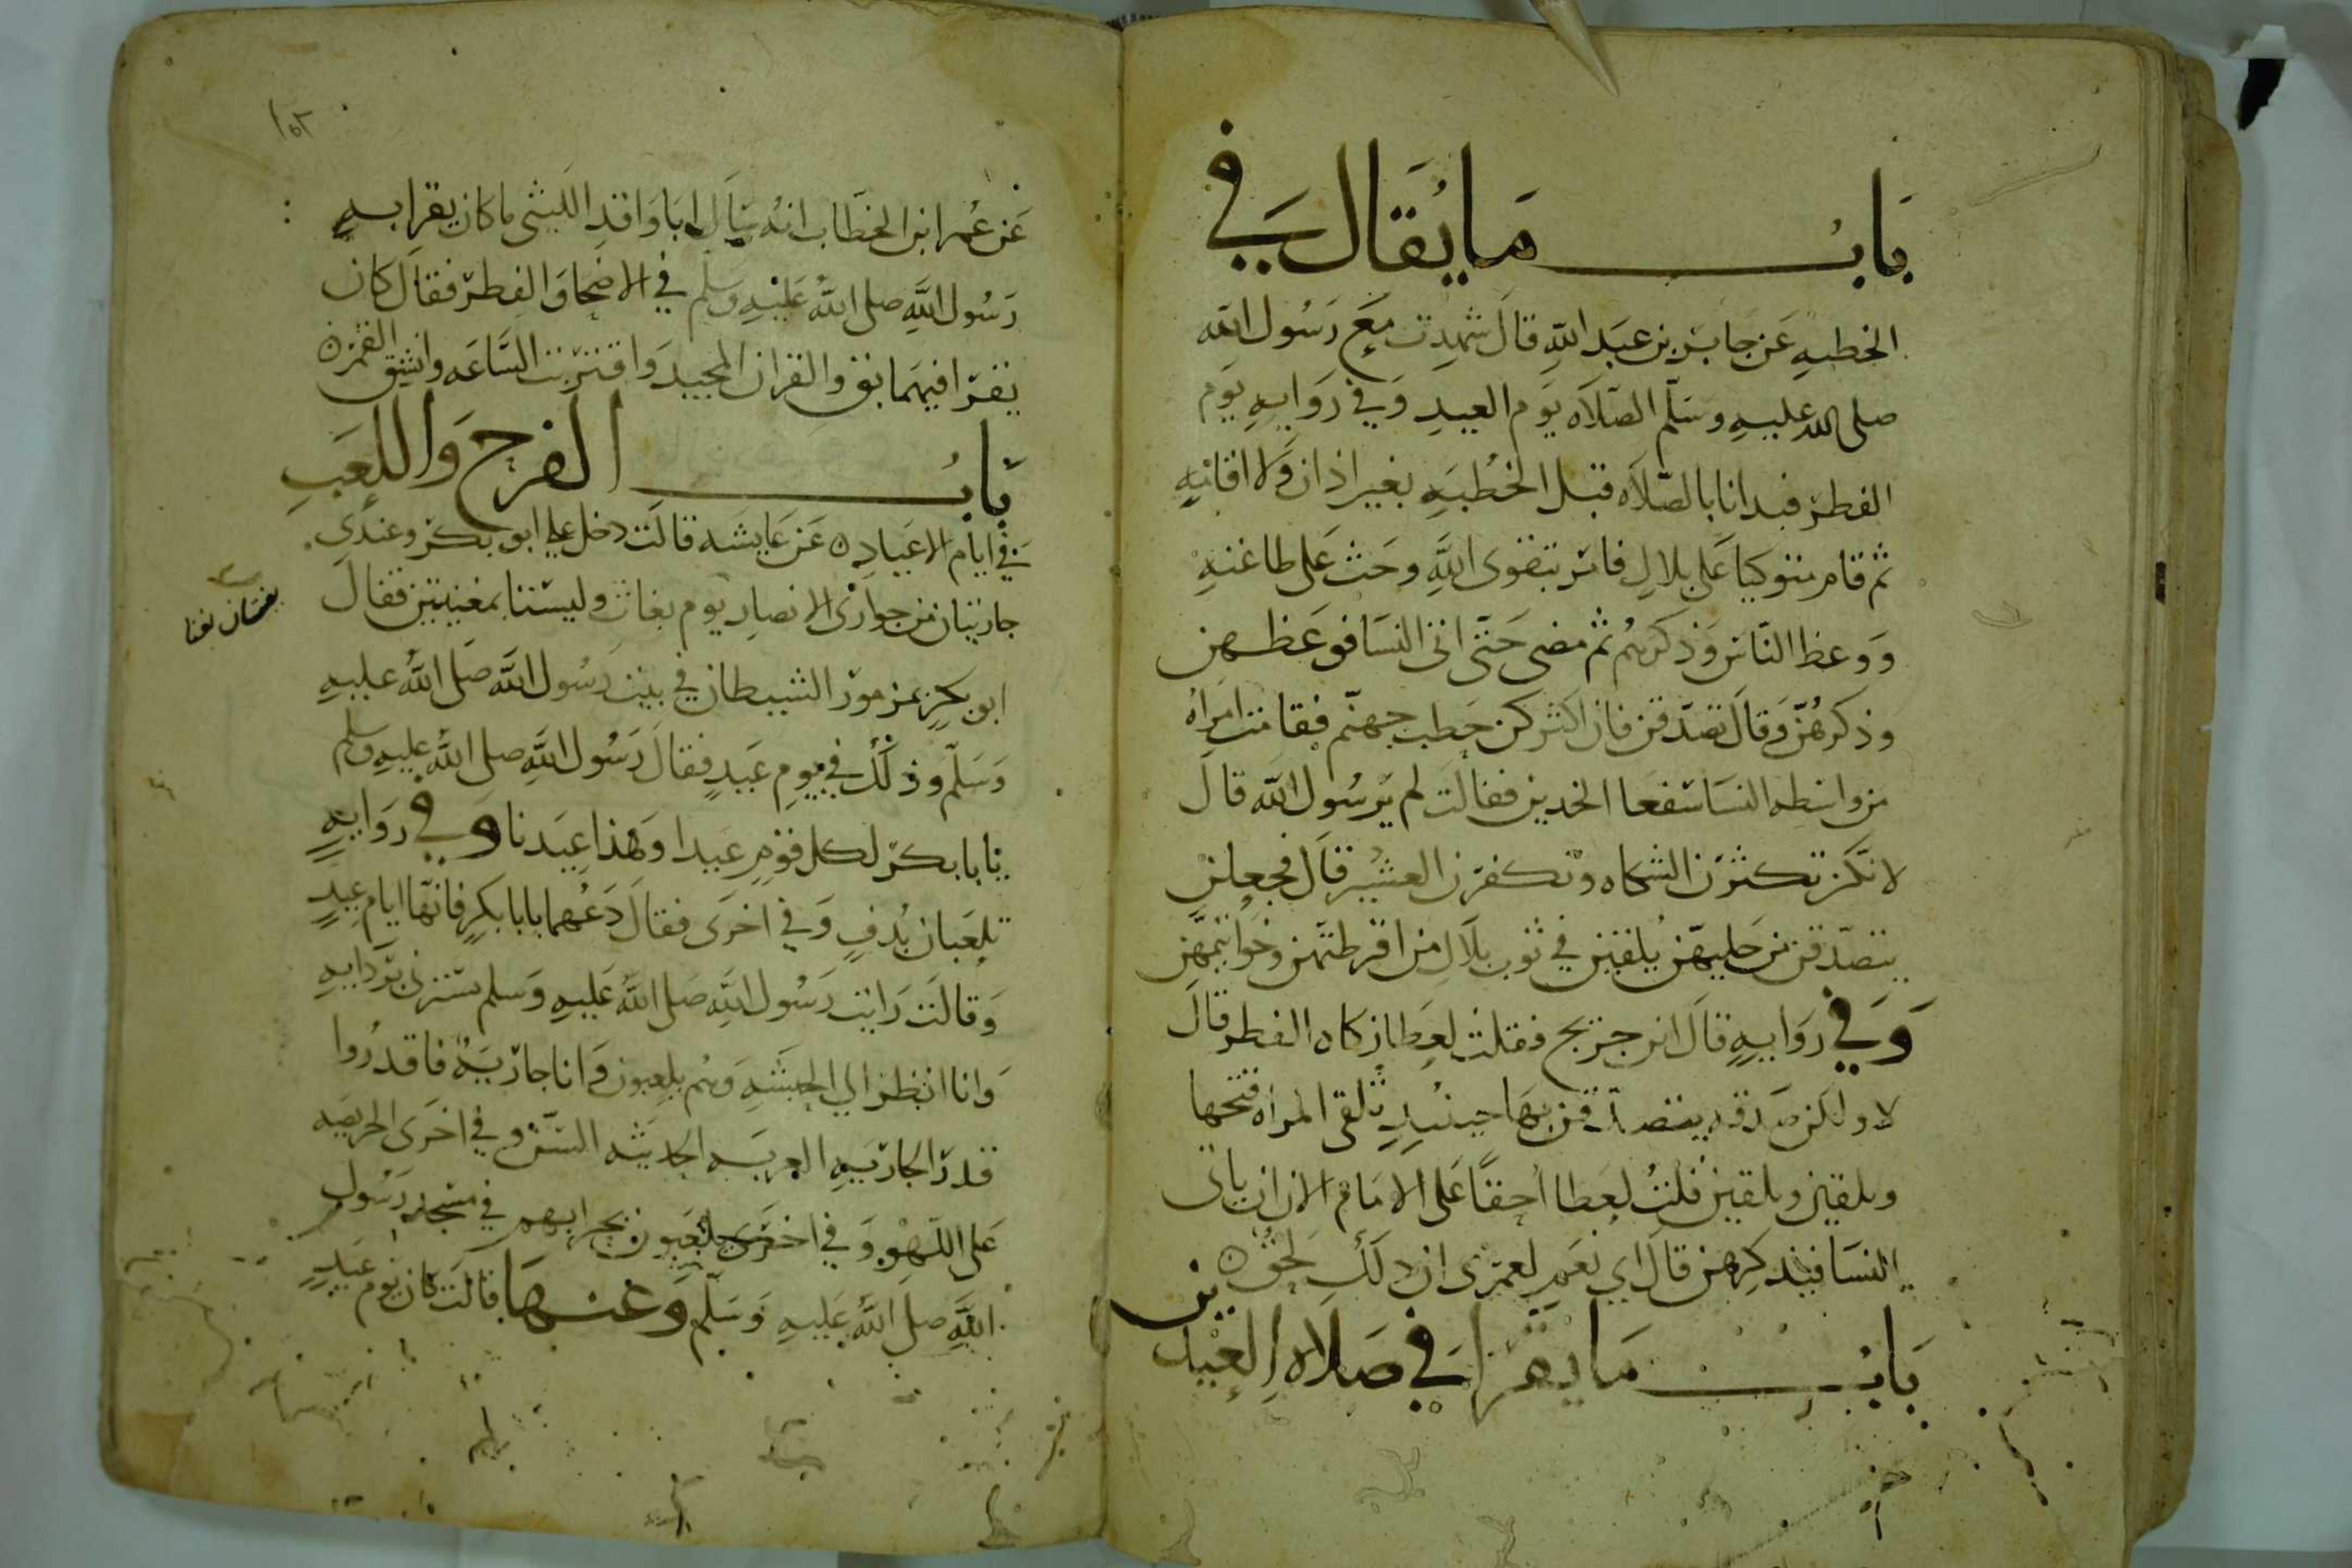 باب ما يقال في
الخطبه عن جابر بن عبد الله قال شهدت مع رسول الله
صلى الله عليه وسلم الصلاه يوم العيد وفي روايه يوم
الفطر فبدانا بالصلاه قبل الخطبه بغير اذان ولا اقامه
ثم قام متوكيا على بلال فامر بتقوى الله وحث على طاعته
ووعظ الناس وذكرهم ثم مضى حتى اتى النسا فوعظهن
وذكرهن وقال تصدقن فان اكثركن حطب جهنم فقامت امراه
من واسطه النسا سفعا الخدين فقالت لم يرسول الله قال
لانكن تكثرن الشكاه وتكفرن العشير قال فجعلن
يتصدقن من حليهن يلقين في ثوب بلال من اقرطتهن وخواتمهن
وفي روايه قال ابن جريج فقلت لعطا زكاه الفطر قال
لا ولكن صدقه يتصدقن بها حينيد تلقى المراه فتخها
ويلقين ويلقين قلت لعطا احقا على الامام الان ان ياتى
النسا فيذكرهن قال اي نعم لعمرى ان ذلك لحق
باب ما يقرا في صلاه العيدين
١٥٣
عن عمر ابن الخطاب انه سال ابا واقد الليثى ما كان يقرا به
رسول الله صلى الله عليه وسلم في الاضحا والفطر فقال كان
يقرا فيهما بق والقران المجيد واقتربت الساعه وانشق القمر
باب الفرح واللعب
في ايام الاعياد عن عايشه قالت دخل علي ابو بكر وعندى
جاريتان من جوارى الانصار يوم بغاث وليستا بمغنيتين فقال
ابو بكر بمزمور الشيطان في بيت رسول الله صلى الله عليه
وسلم وذلك في يوم عيد فقال رسول الله صلى الله عليه وسلم
يا با بكر لكل قوم عيدا وهذا عيدنا وفي روايه
تلعبان بدف وفي اخرى فقال دعهما يا با بكر فانها ايام عيد
وقالت رايت رسول الله صلى الله عليه وسلم يسترنى بردايه
وانا انظر الي الحبشه وهم يلعبون وانا جاريه فاقدروا
قدر الجاريه العربه الحديثه السن وفي اخرى الحريصه
على اللهو وفي اخرى يلعبون بحرابهم في مسجد رسول
الله صلى الله عليه وسلم وعنها قالت كان يوم عيد